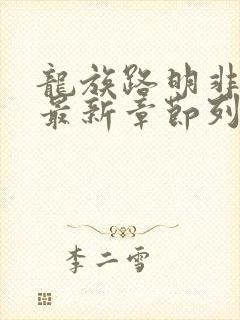 龍族路明非
最新章節列
李二雪